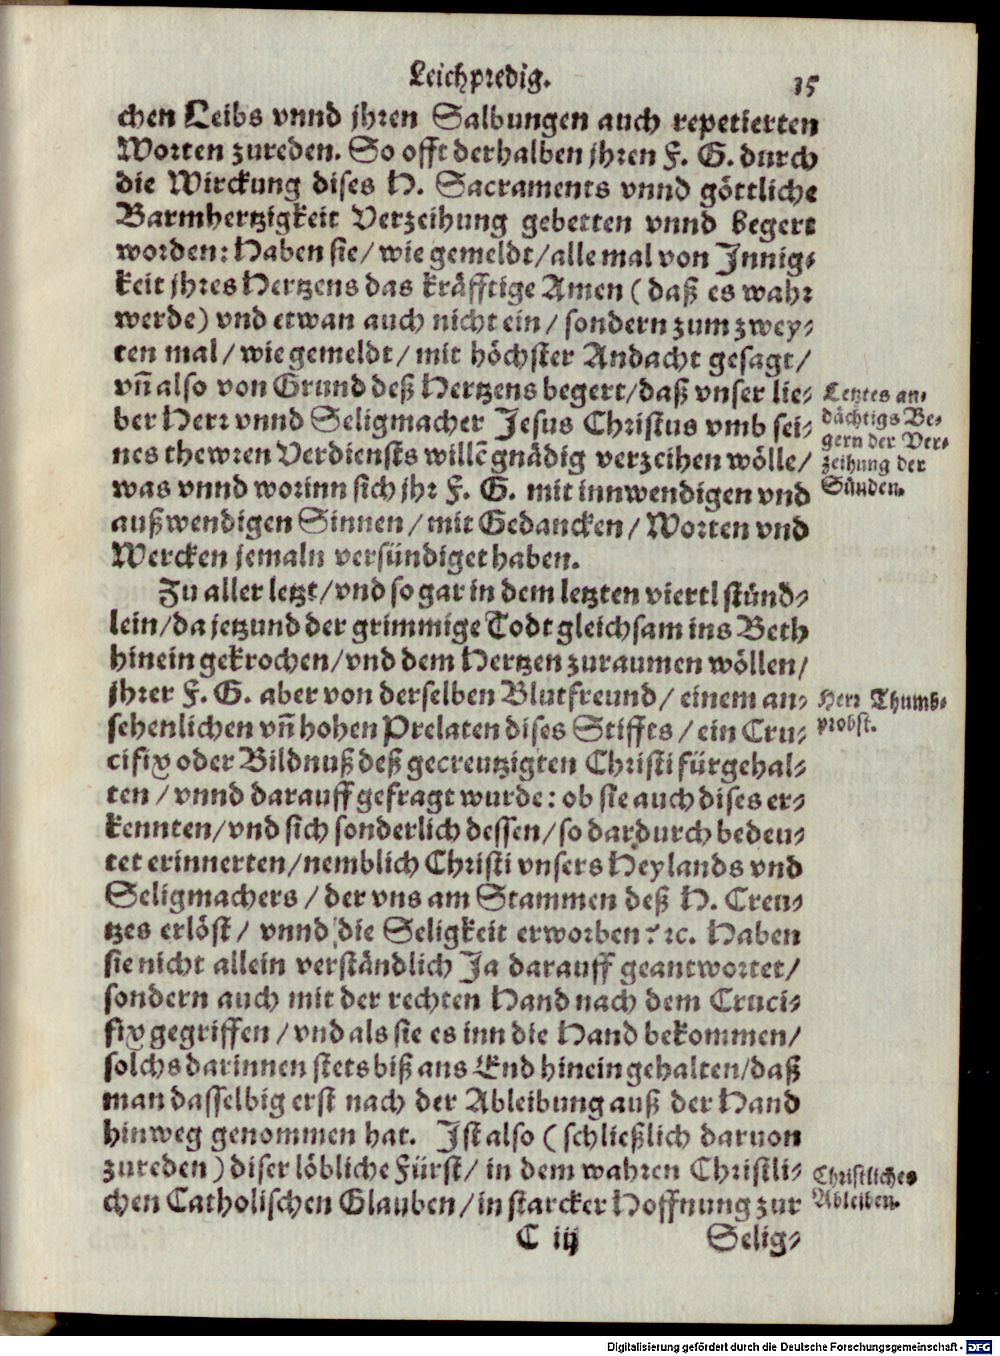 Leichpredig. 15
chen Leibs vnnd jhren Salbungen auch repetierten
Worten zureden. So offt derhalben jhren F. G. durch
die Wirckung dises H. Sacraments vnnd göttliche
Barmhertzigkeit Verzeihung gebetten vnnd begert
worden: Haben sie/ wie gemeldt/ alle mal von Innig⸗
keit jhres Hertzens das kräfftige Amen ( daß es wahr
werde ) vnd etwan auch nicht ein/ sondern zum zwey⸗
ten mal/ wie gemeldt/ mit höchster Andacht gesagt/
vñ also von Grund deß Hertzens begert/ daß vnser lie⸗
ber Herr vnnd Seligmacher Jesus Christus vmb sei⸗
nes thewren Verdiensts willẽ gnädig verzeihen wölle/
was vnnd worinn sich jhr F. G. mit innwendigen vnd
außwendigen Sinnen/ mit Gedancken/ Worten vnd
Wercken jemaln versündiget haben.
Letztes an⸗
dächtigs Be⸗
gern der Ver⸗
zeihung der
Sünden.
Zu aller letzt/ vnd so gar in dem letzten viertl stünd⸗
lein/ da jetzund der grimmige Todt gleichsam ins Beth
hinein gekrochen/ vnd dem Hertzen zuraumen wöllen/
jhrer F. G. aber von derselben Blutfreund/ einem an⸗
sehenlichen vñ hohen Prelaten dises Stiffts/ ein Cru⸗
cifix oder Bildnuß deß gecreutzigten Christi fürgehal⸗
ten/ vnnd darauff gefragt wurde: ob sie auch dises er⸗
kennten/ vnd sich sonderlich dessen/ so dardurch bedeu⸗
tet erinnerten/ nemblich Christi vnsers Heylands vnd
Seligmachers/ der vns am Stammen deß H. Creu⸗
tzes erlöst/ vnnd die Seligkeit erworben? ꝛc. Haben
sie nicht allein verständlich Ja darauff geantwortet/
sondern auch mit der rechten Hand nach dem Cruci⸗
fix gegriffen/ vnd als sie es inn die Hand bekommen/
solchs darinnen stets biß ans End hinein gehalten/ daß
man dasselbig erst nach der Ableibung auß der Hand
hinweg genommen hat. Ist also ( schließlich daruon
zureden ) diser löbliche Fürst/ in dem wahren Christli⸗
chen Catholischen Glauben/ in starcker Hoffnung zur
Herr Thumb⸗
probst.
Christliches
Ableiben.
C iij Selig⸗
Digitalisierung gefördert durch die Deutsche Forschungsgemeinschaft - DFG